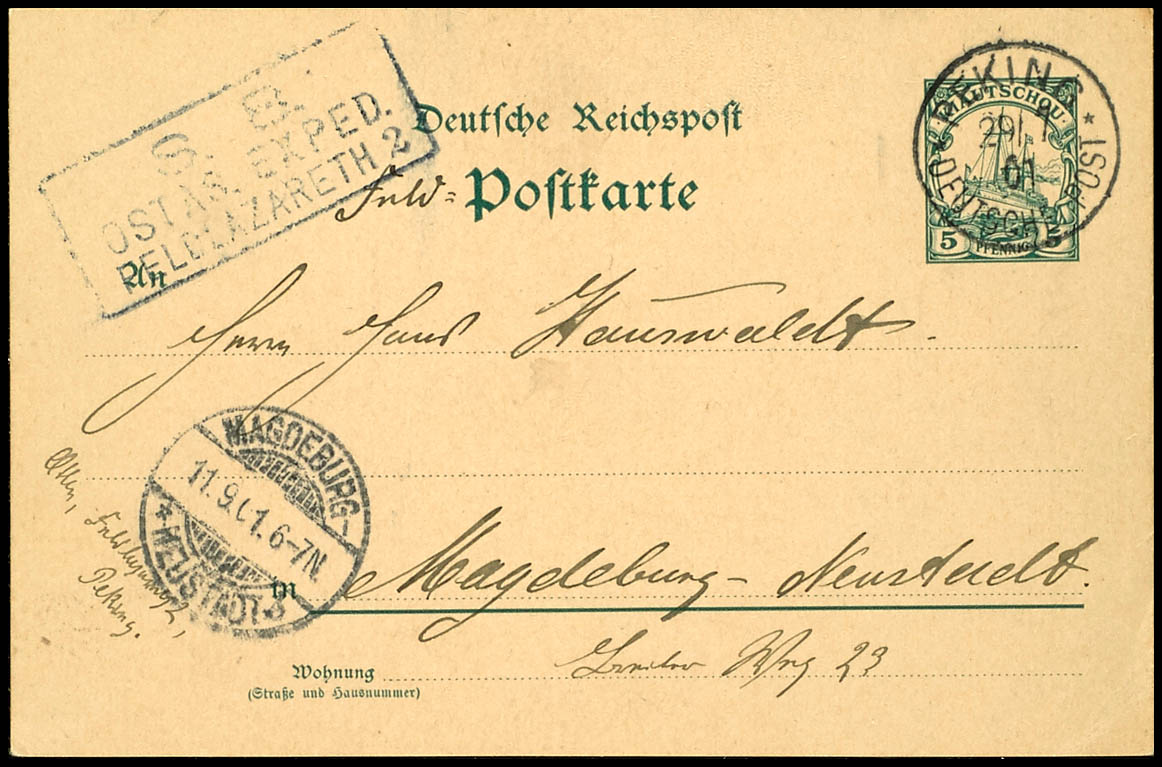 S. B.
OSTAS. EXPED.
FELDLAZARETH 2
Deutsche Reichspost
Feld= Postkarte
PEKING
KIAUTSCHOU
29/7
01
* DEUTSCHE POST *
5 PFENNIG 5
An
Herrn Hans Hauswaldt.
MAGDEBURG-
11.9.01.6-7N.
* NEUSTADT
Peking.
in Magdeburg-Neustadt.
Breiter Weg 23
Wohnung
(Straße und Hausnummer)